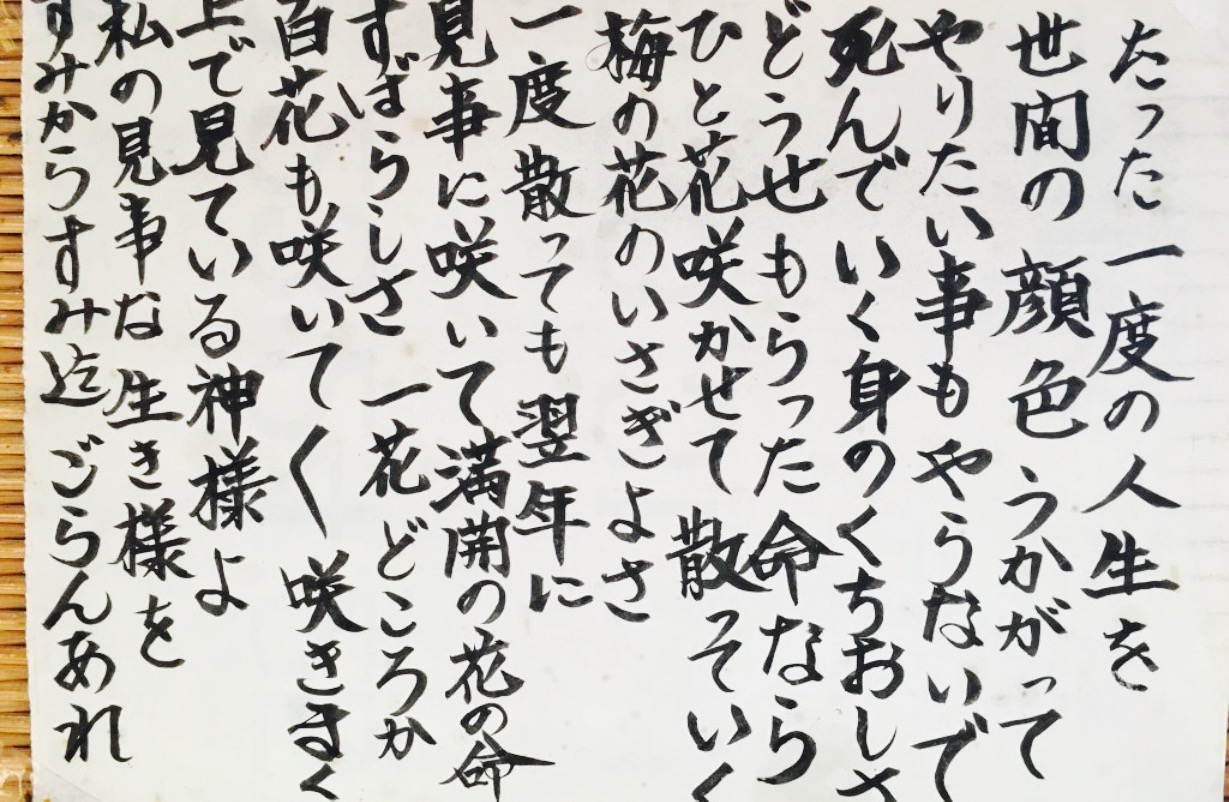 たった一度の人生を
世間の顔色うかがって
やりたい事もやらないで
死んでいく身のくちおしさ
どうせもらった命なら
ひと花咲かせて散っていく
梅の花のいさぎよさ
一度散っても翌年に
見事に咲いて満開の花の命
すばらしさ一花どころか
百花も咲いてく咲きまく
上で見ている神様よ
私の見事な生き様を
すみからすみ迄ごらんあれ